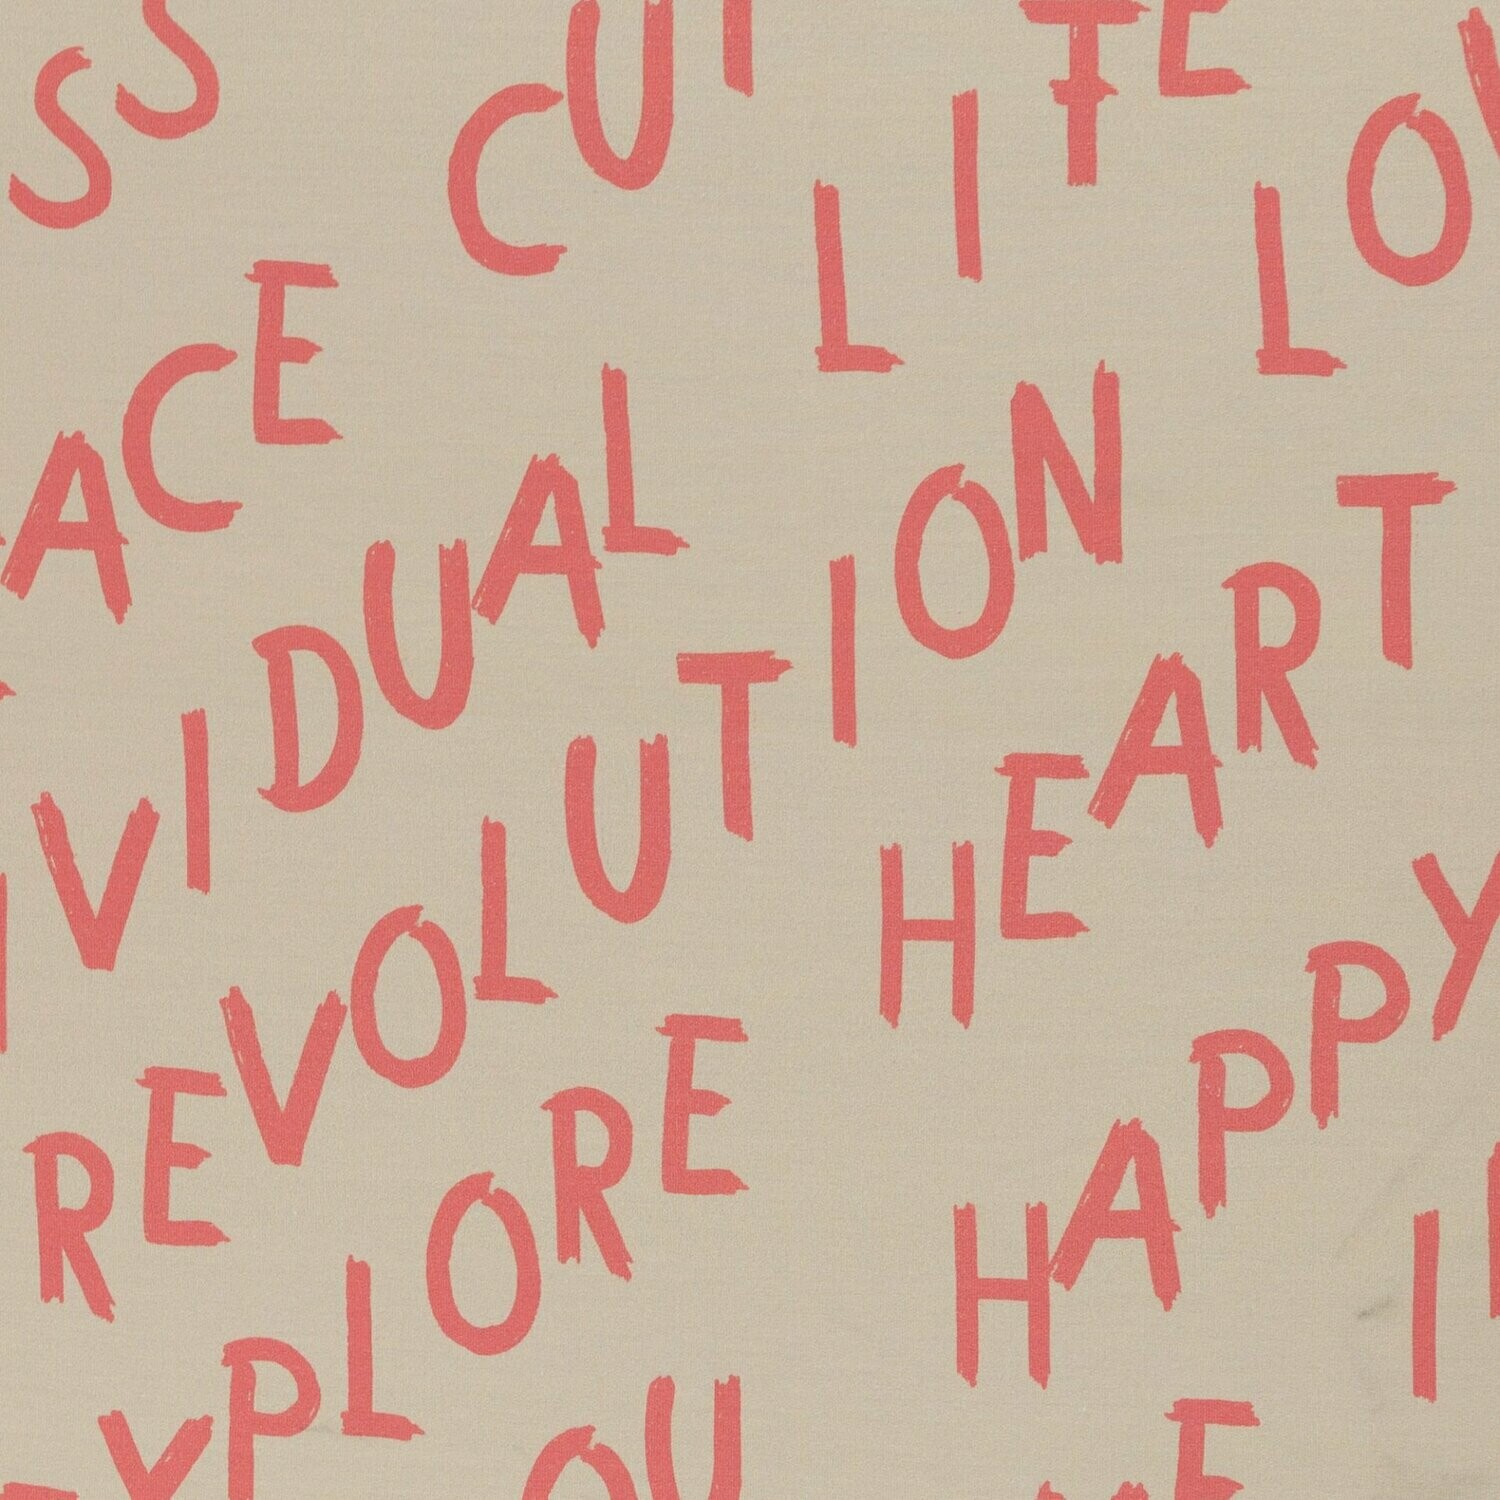 SS
CUT
LIFE
LOV
ACE
VIDUAL
REVOLUTION
HEART
EXPLORE
HAPPY
OU